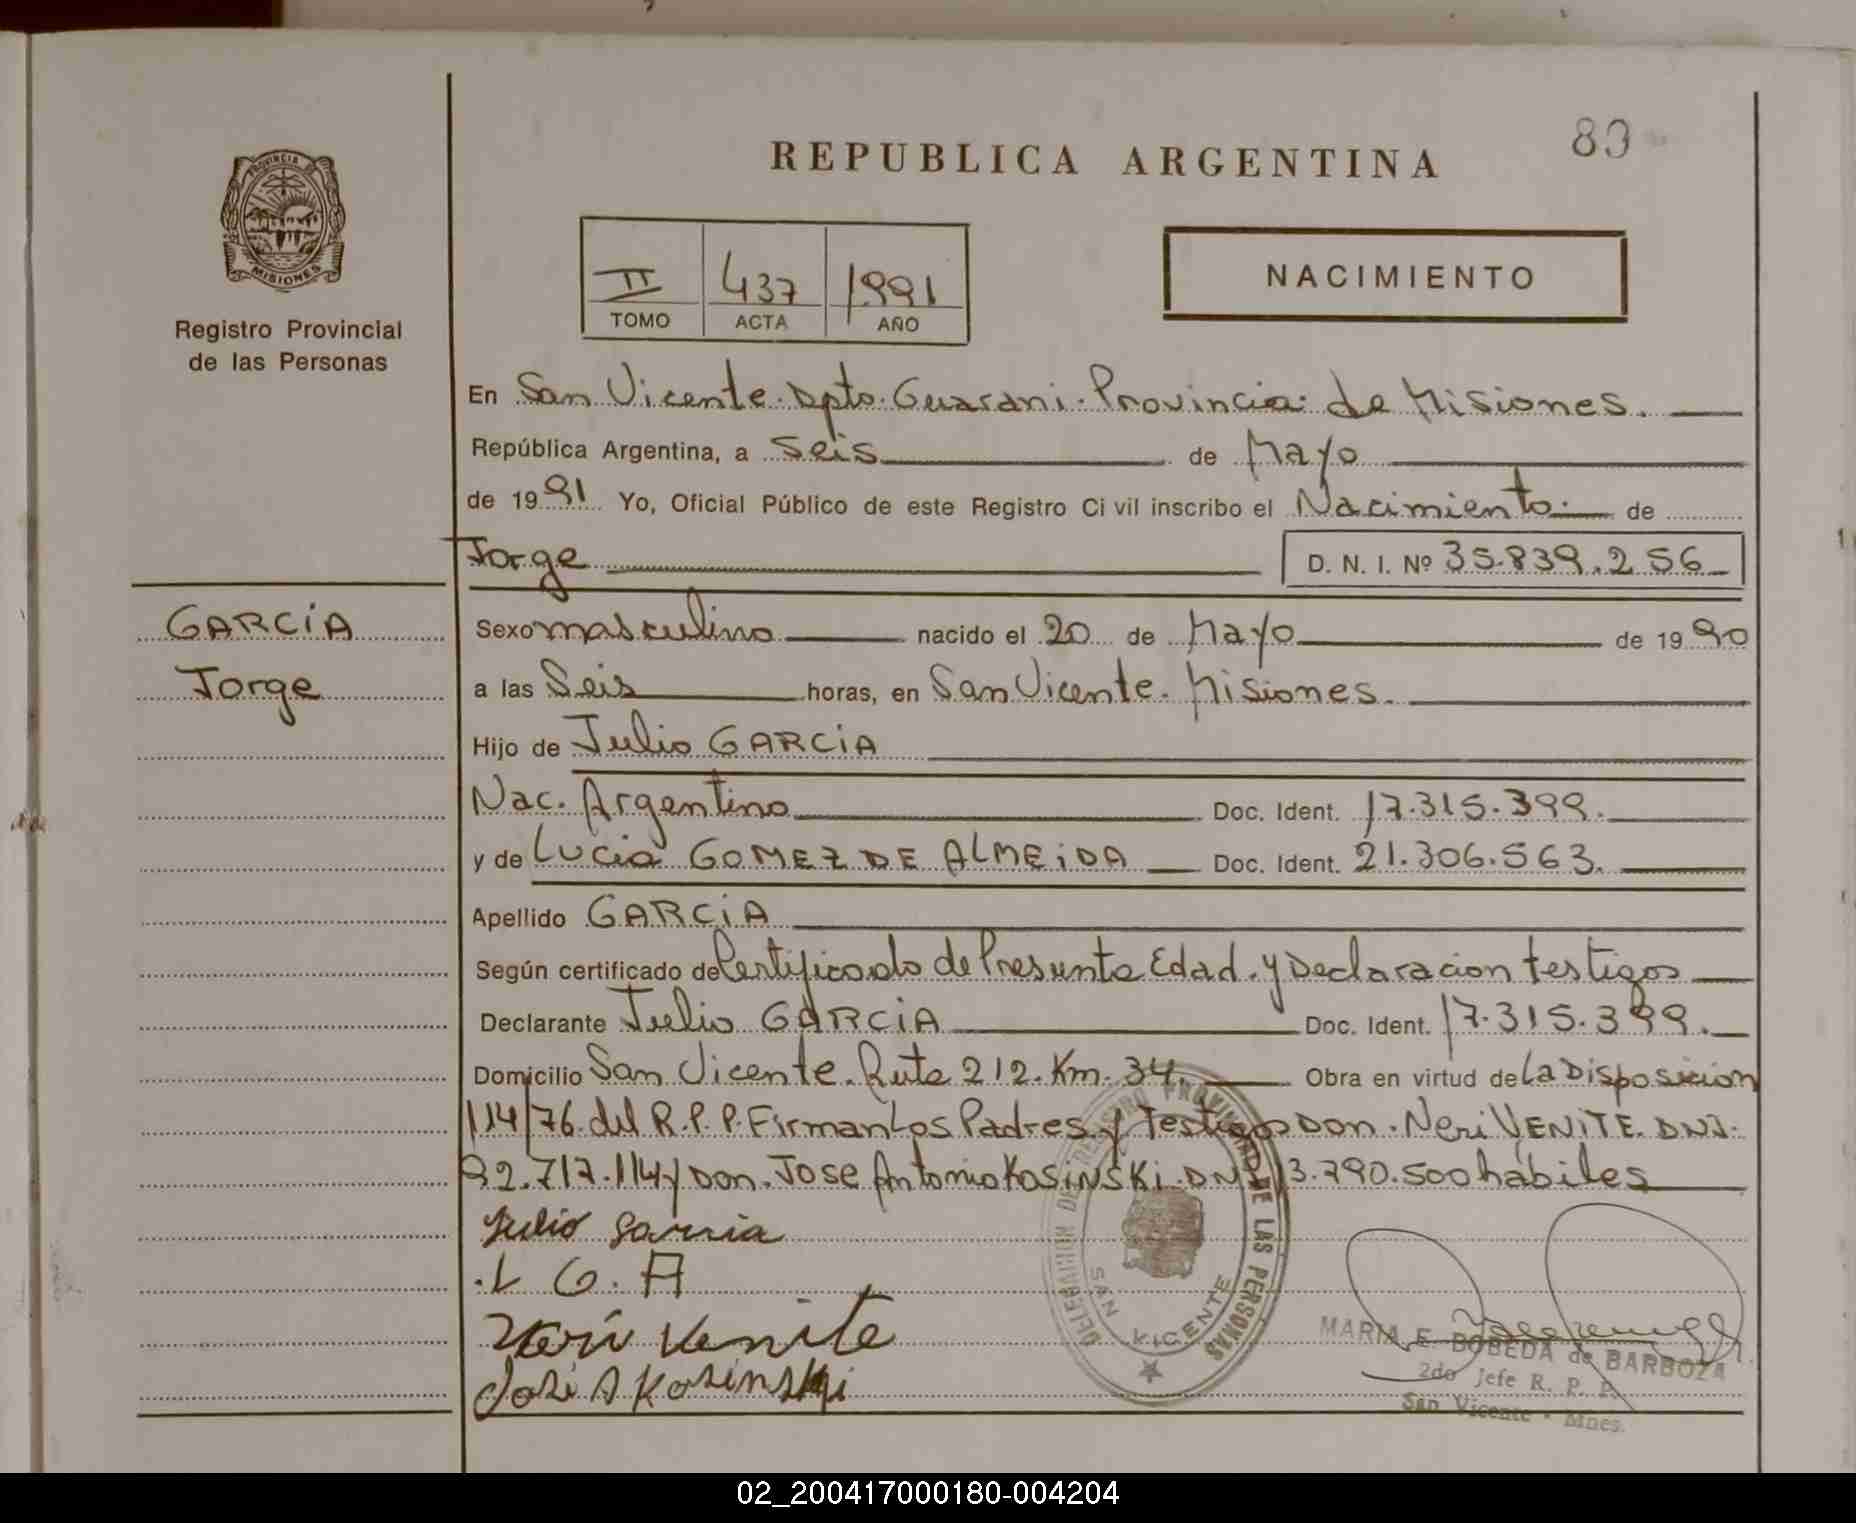 83
REPUBLICA ARGENTINA
PROVINCIA DE
MISIONES
Registro Provincial
de las Personas
II 437 1991
TOMO ACTA AÑO
NACIMIENTO
En San Vicente. Dpto. Guarani. Provincia de Misiones.
República Argentina, a seis de Mayo
de 1991 Yo, Oficial Público de este Registro Civil inscribo el Nacimiento. de
Jorge D. N. I. Nº 35.839.256
GARCIA
Jorge
Sexo masculino nacido el 20 de Mayo de 1990
a las Seis horas, en San Vicente. Misiones.
Hijo de Julio GARCIA
Nac. Argentino Doc. Ident. 17.315.399.
y de Lucia GOMEZ DE ALMEIDA Doc. Ident. 21.306.563.
Apellido GARCIA
Según certificado de Certificado de Presunta Edad. y Declaracion testigos
Declarante Julio GARCIA Doc. Ident. 17.315.399.
Domicilio San Vicente. Ruta 212. Km. 34. Obra en virtud de La Disposicion
114/76. del R.P.P. Firman Los Padres y Testigos Don. Neri VENITE. DNI.
92.717.114 y Don. JOSE Antonio KOSINSKI. DNI 13.790.500 habiles
Julio Garcia
L G. A
Neri Venite
José A Kosinski
DELEGACION DE REGISTRO PROVINCIAL DE LAS PERSONAS
SAN VICENTE
MARIA E. BOBEDA de BARBOZA
2do Jefe R. P. P.
San Vicente - Mnes.
02_200417000180-004204